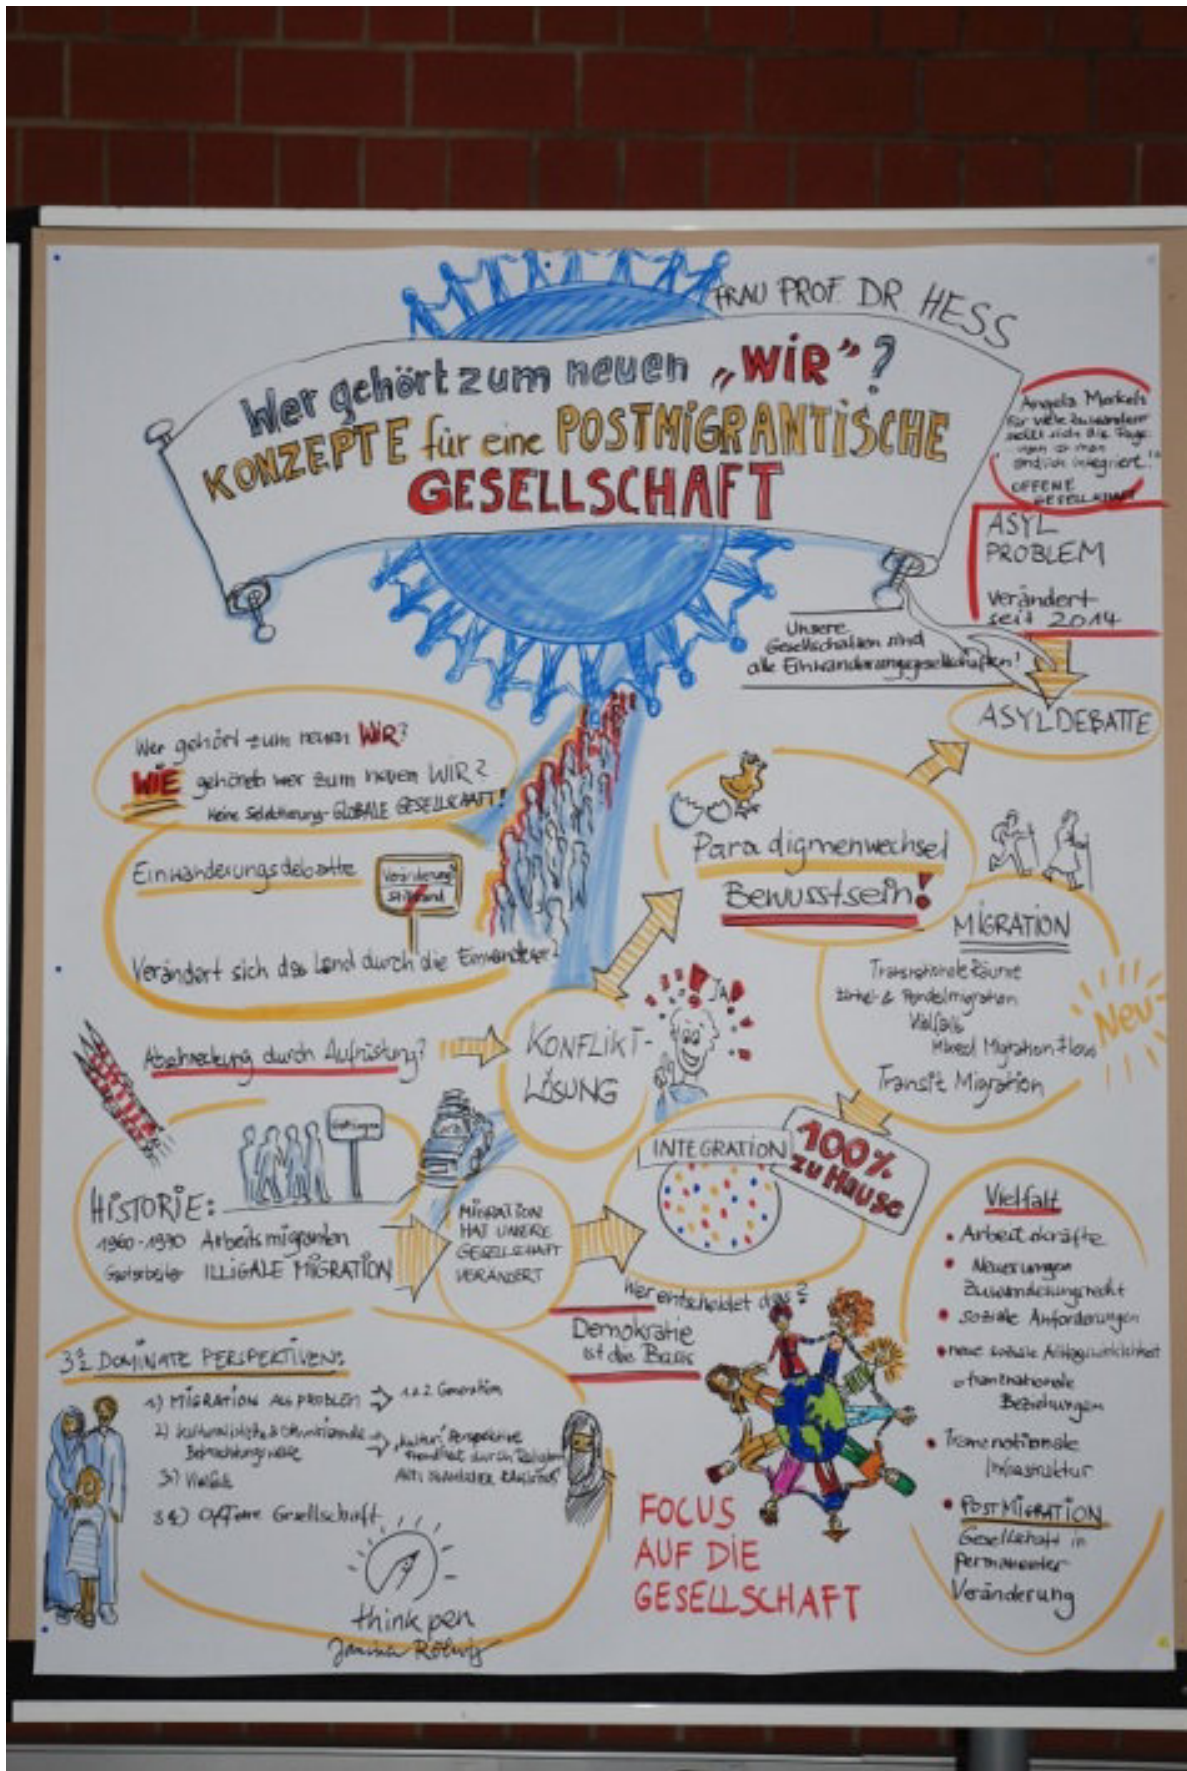 FRAU PROF. DR HESS
Wer gehört zum neuen „WIR"?
KONZEPTE für eine POSTMIGRANTISCHE
GESELLSCHAFT
Angela Merkel:
Für viele Zuwanderer
stellt sich die Frage:
wann ist man
endlich integriert?"
OFFENE
GESELLSCHAFT
ASYL
PROBLEM
verändert
seit 2014
Unsere
Gesellschaften sind
alle Einwanderungsgesellschaften!
ASYLDEBATTE
Wer gehört zum neuen WIR?
WIE gehört wer zum neuen WIR?
Keine Selektierung - GLOBALE GESELLSCHAFT!
Einwanderungsdebatte
Veränderung
Stillstand
Verändert sich das Land durch die Einwanderer?
Paradigmenwechsel
Bewusstsein!
MIGRATION
Transnationale Räume
Zirkel- & Pendelmigration
Vielfalt
Mixed Migration Flows
Transit Migration
Neu
Abschreckung durch Aufrüstung?
KONFLIKT-
LÖSUNG
JA!
HISTORIE:
1960-1990 Arbeitsmigranten
Gastarbeiter ILLIGALE MIGRATION
Göttingen
MIGRATION
HAT UNSERE
GESELLSCHAFT
VERÄNDERT
INTEGRATION
100%
zu Hause
Wer entscheidet das?
Demokratie
ist die Basis
Vielfalt
• Arbeitskräfte
• Neuerungen
Zuwanderungsrecht
• soziale Anforderungen
• neue soziale Alltagswirklichkeit
transnationale
Beziehungen
• Transnationale
Infrastruktur
• POSTMIGRATION
Gesellschaft in
permanenter
Veränderung
DOMINATE PERSPEKTIVEN:
1) MIGRATION ALS PROBLEM → 1.&2. Generation
2) kulturalistische &
Betrachtungsweise
„Kultur" Perspektive
Fremdheit durch Religion
RASSISMUS
3) Vielfalt
Offene Gesellschaft
think pen
FOCUS
AUF DIE
GESELLSCHAFT